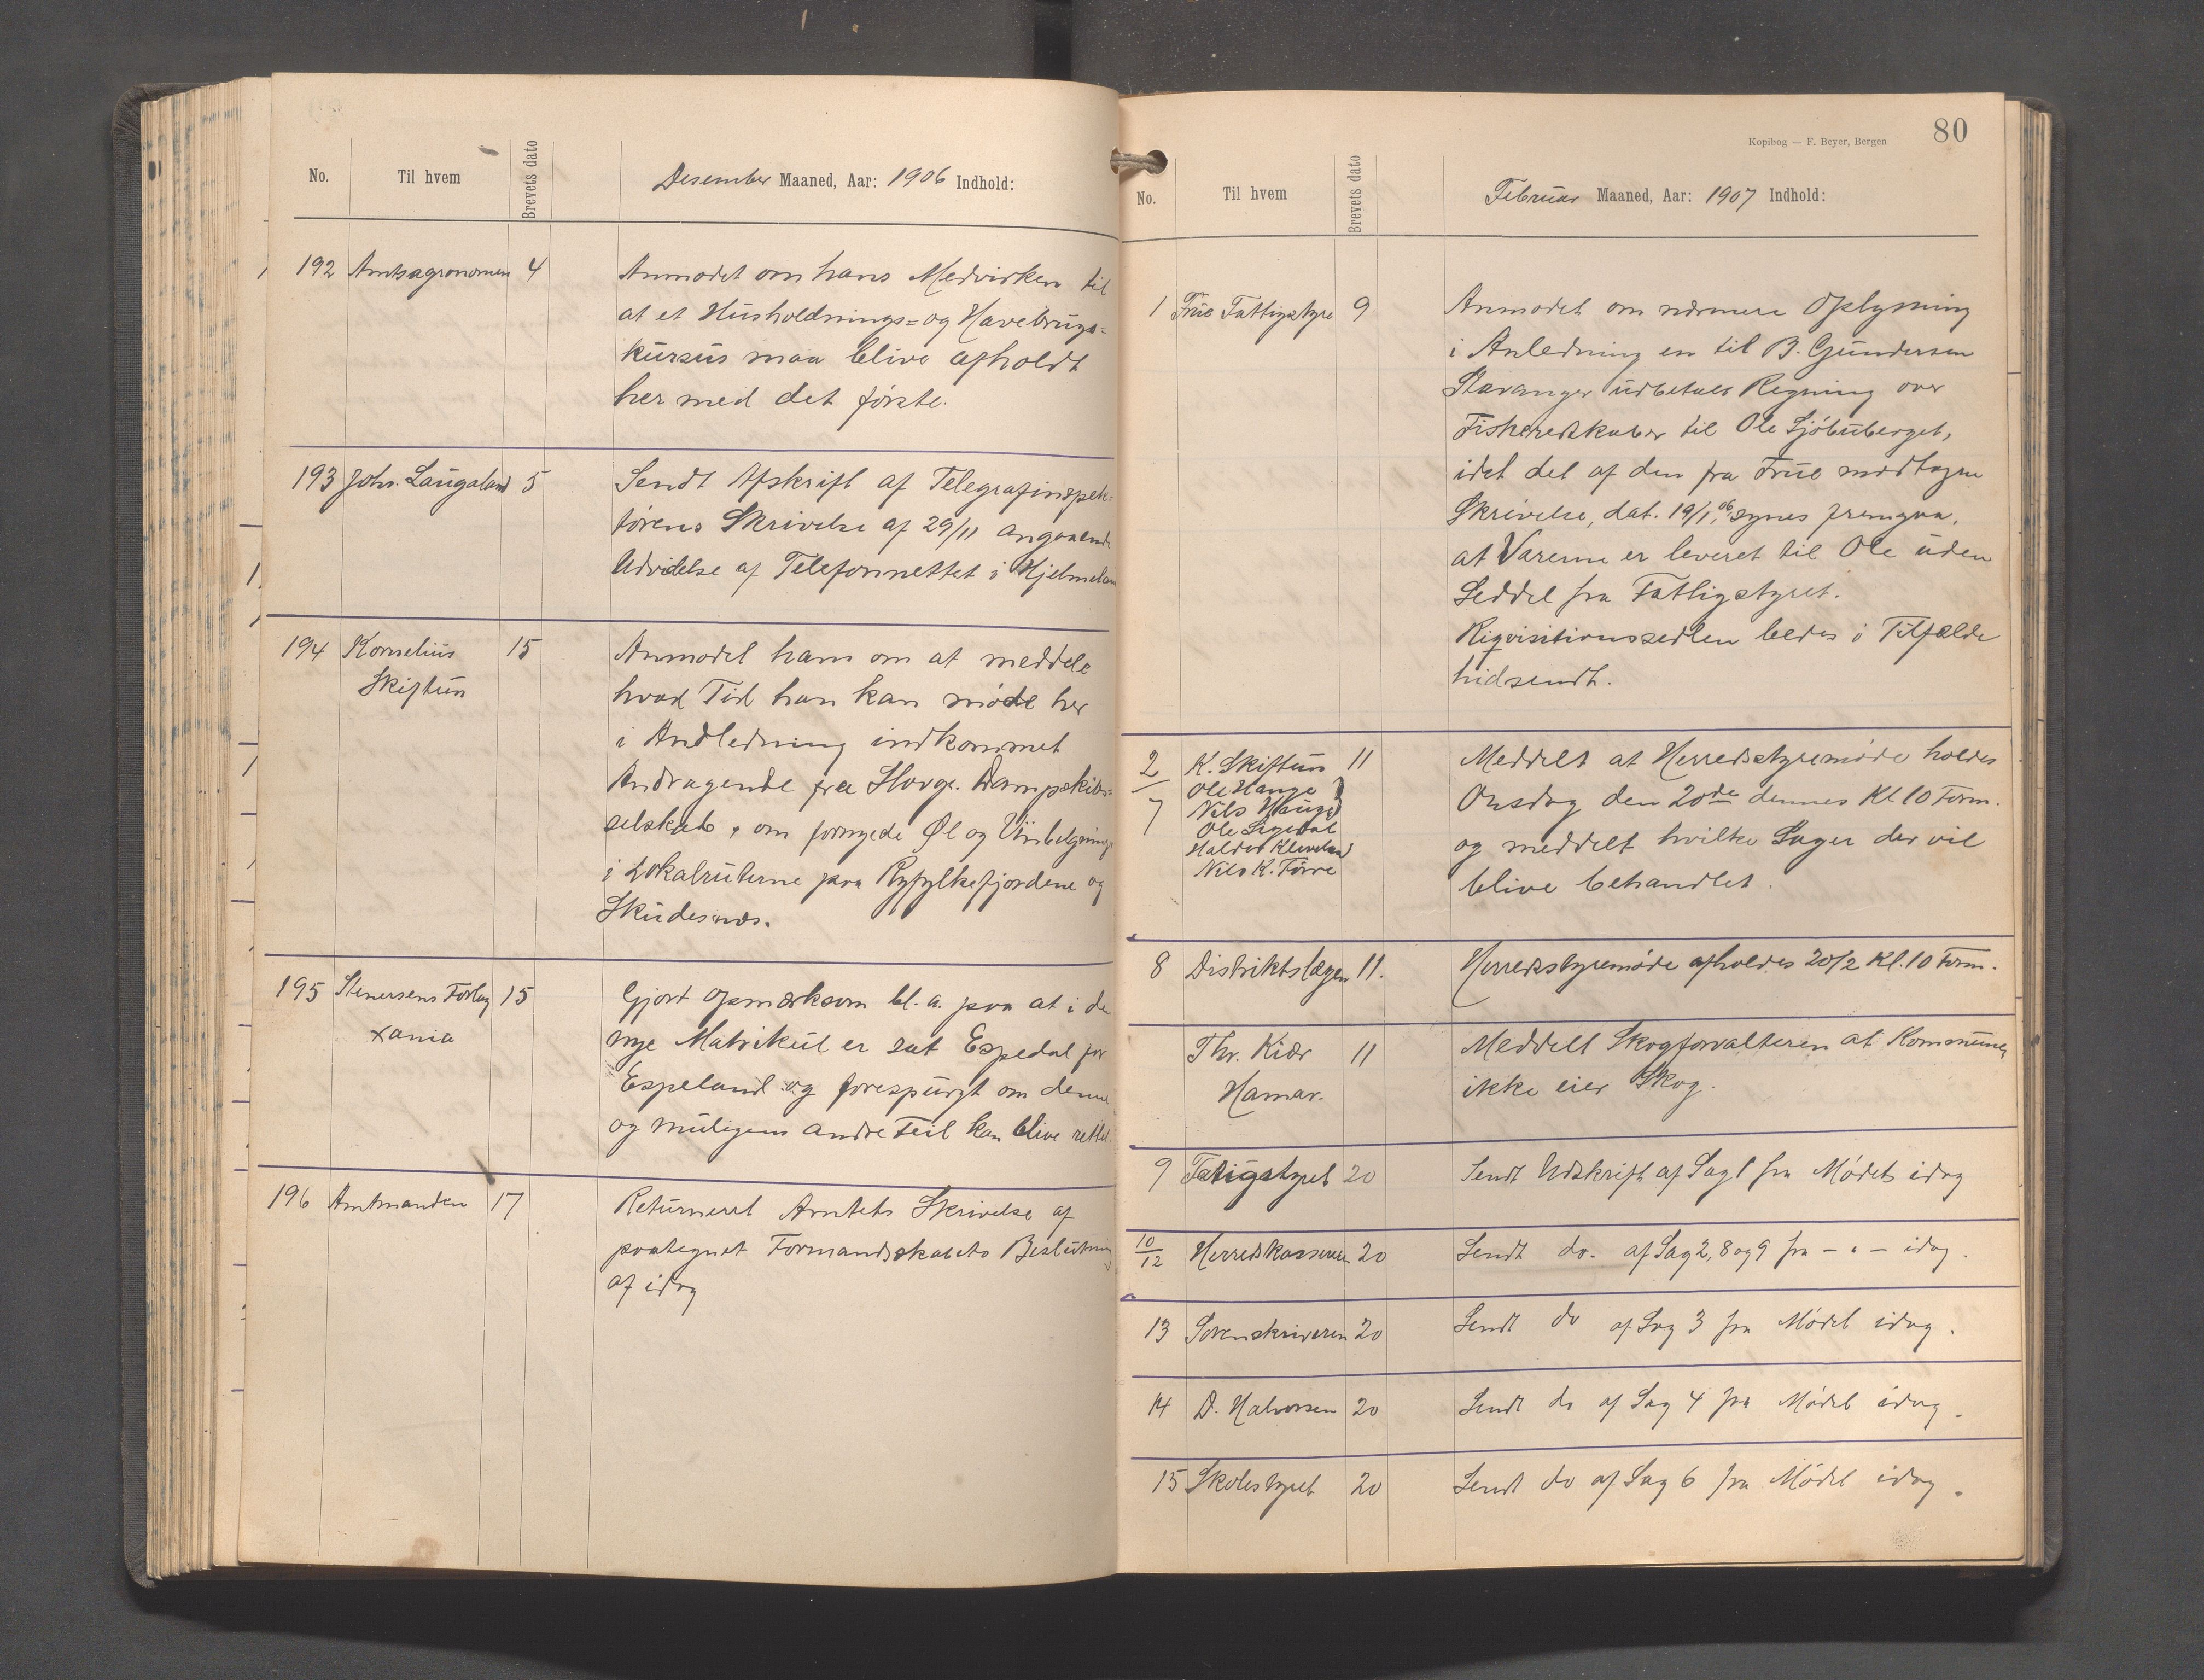 No. Til hvem Brevets dato Desember Maaned, Aar: 1906 Indhold:
192 Amtsagronomen 4 Anmodet om hans Medvirken til
at et Husholdnings= og Havebrugs=
kursus maa blive afholdt
her med det første.
193 Johs. Laugaland 5 Sendt Afskrift af Telegrafinspek=
tørens Skrivelse af 29/11 angaaende
Udvidelse af Telefonnettet i Hjelmeland
194 Kornelius 15 Anmodet ham om at meddele
Skiftun hvad Tid han kan møde her
i Andledning indkommet
Andragende fra Stavgr. Dampskibs=
selskab, om fornyede Øl og Vin
i Lokalruterne paa Ryfylkefjordene og
Skudesnæs.
195 Stenersens Forlag 15 Gjort opmærksom bl. a. paa at i de
Xania nye Matrikul er sat Espedal for
Espeland og forespurgt om denne
og muligens andre Feil kan blive rettet
196 Amtmanden 17 Returneret Amtets Skrivelse af
paategnet Formandsskabets Beslutning
af idag
Kopibog — F. Beyer, Bergen 80
No. Til hvem Brevets dato Februar Maaned, Aar: 1907 Indhold:
1 Frue Fattigstyre 9 Anmodet om nærmere Oplysning
i Anledning en til B. Gundersen
Stavanger udbetalt Regning over
Fiskeredskaber til Ole Sjøbuberget,
idet det af den fra Frue modtagne
Skrivelse, dat. 19/1 06, synes fremgaa,
at Varerne er leveret til Ole uden
Seddel fra Fattigstyret.
Riqvisitionssedlen bedes i Tilfælde
hidsendt.
2 K. Skiftun 11 Meddelt at Herredsstyremøde holdes
Ole Hauge
7 Nils Hauge Onsdag den 20de dennes Kl 10 Form.
Ole Sigedal og meddelt hvilke Sager der vil
Haldor Kleveland
Nils K. Tørre blive behandlet.
8 Distriktslægen 11. Herredsstyremøde afholdes 20/2 Kl. 10 Form.
Thv. Kiær 11 Meddelt Skogforvalteren at Kommunen
Hamar. ikke eier Skog.
9 Fatigstyret 20 Sendt Udskrift af Sag 1 fra Mødets idag
10/12 Herredskasseren 20 Sendt do. af Sag 2, 8 og 9 fra - " - idag.
13 Sorenskriveren 20 Sendt do af Sag 3 fra Mødet idag.
14 D. Halvorsen 20 Sendt do af Sag 4 fra Mødet idag.
15 Skolestyret 20 Sendt do af Sag 6 fra Mødet idag.